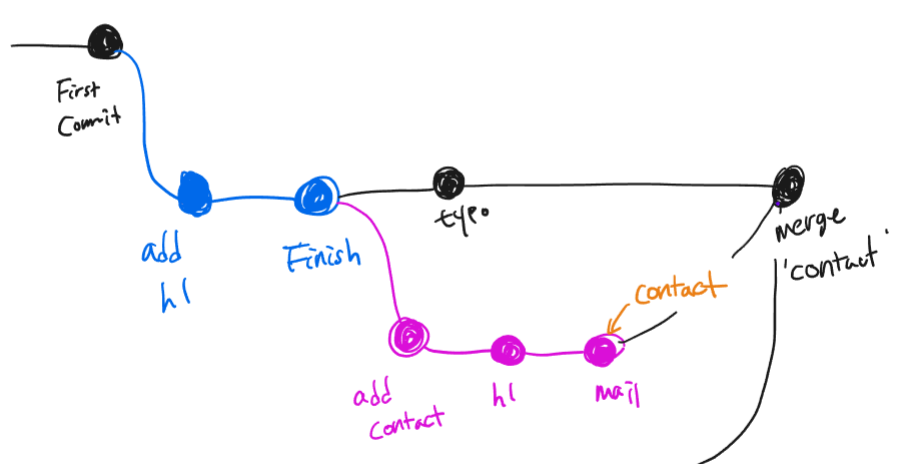 First
Commit
add
h1
Finish
typo
merge
'contact'
contact
add
contact
h1
mail